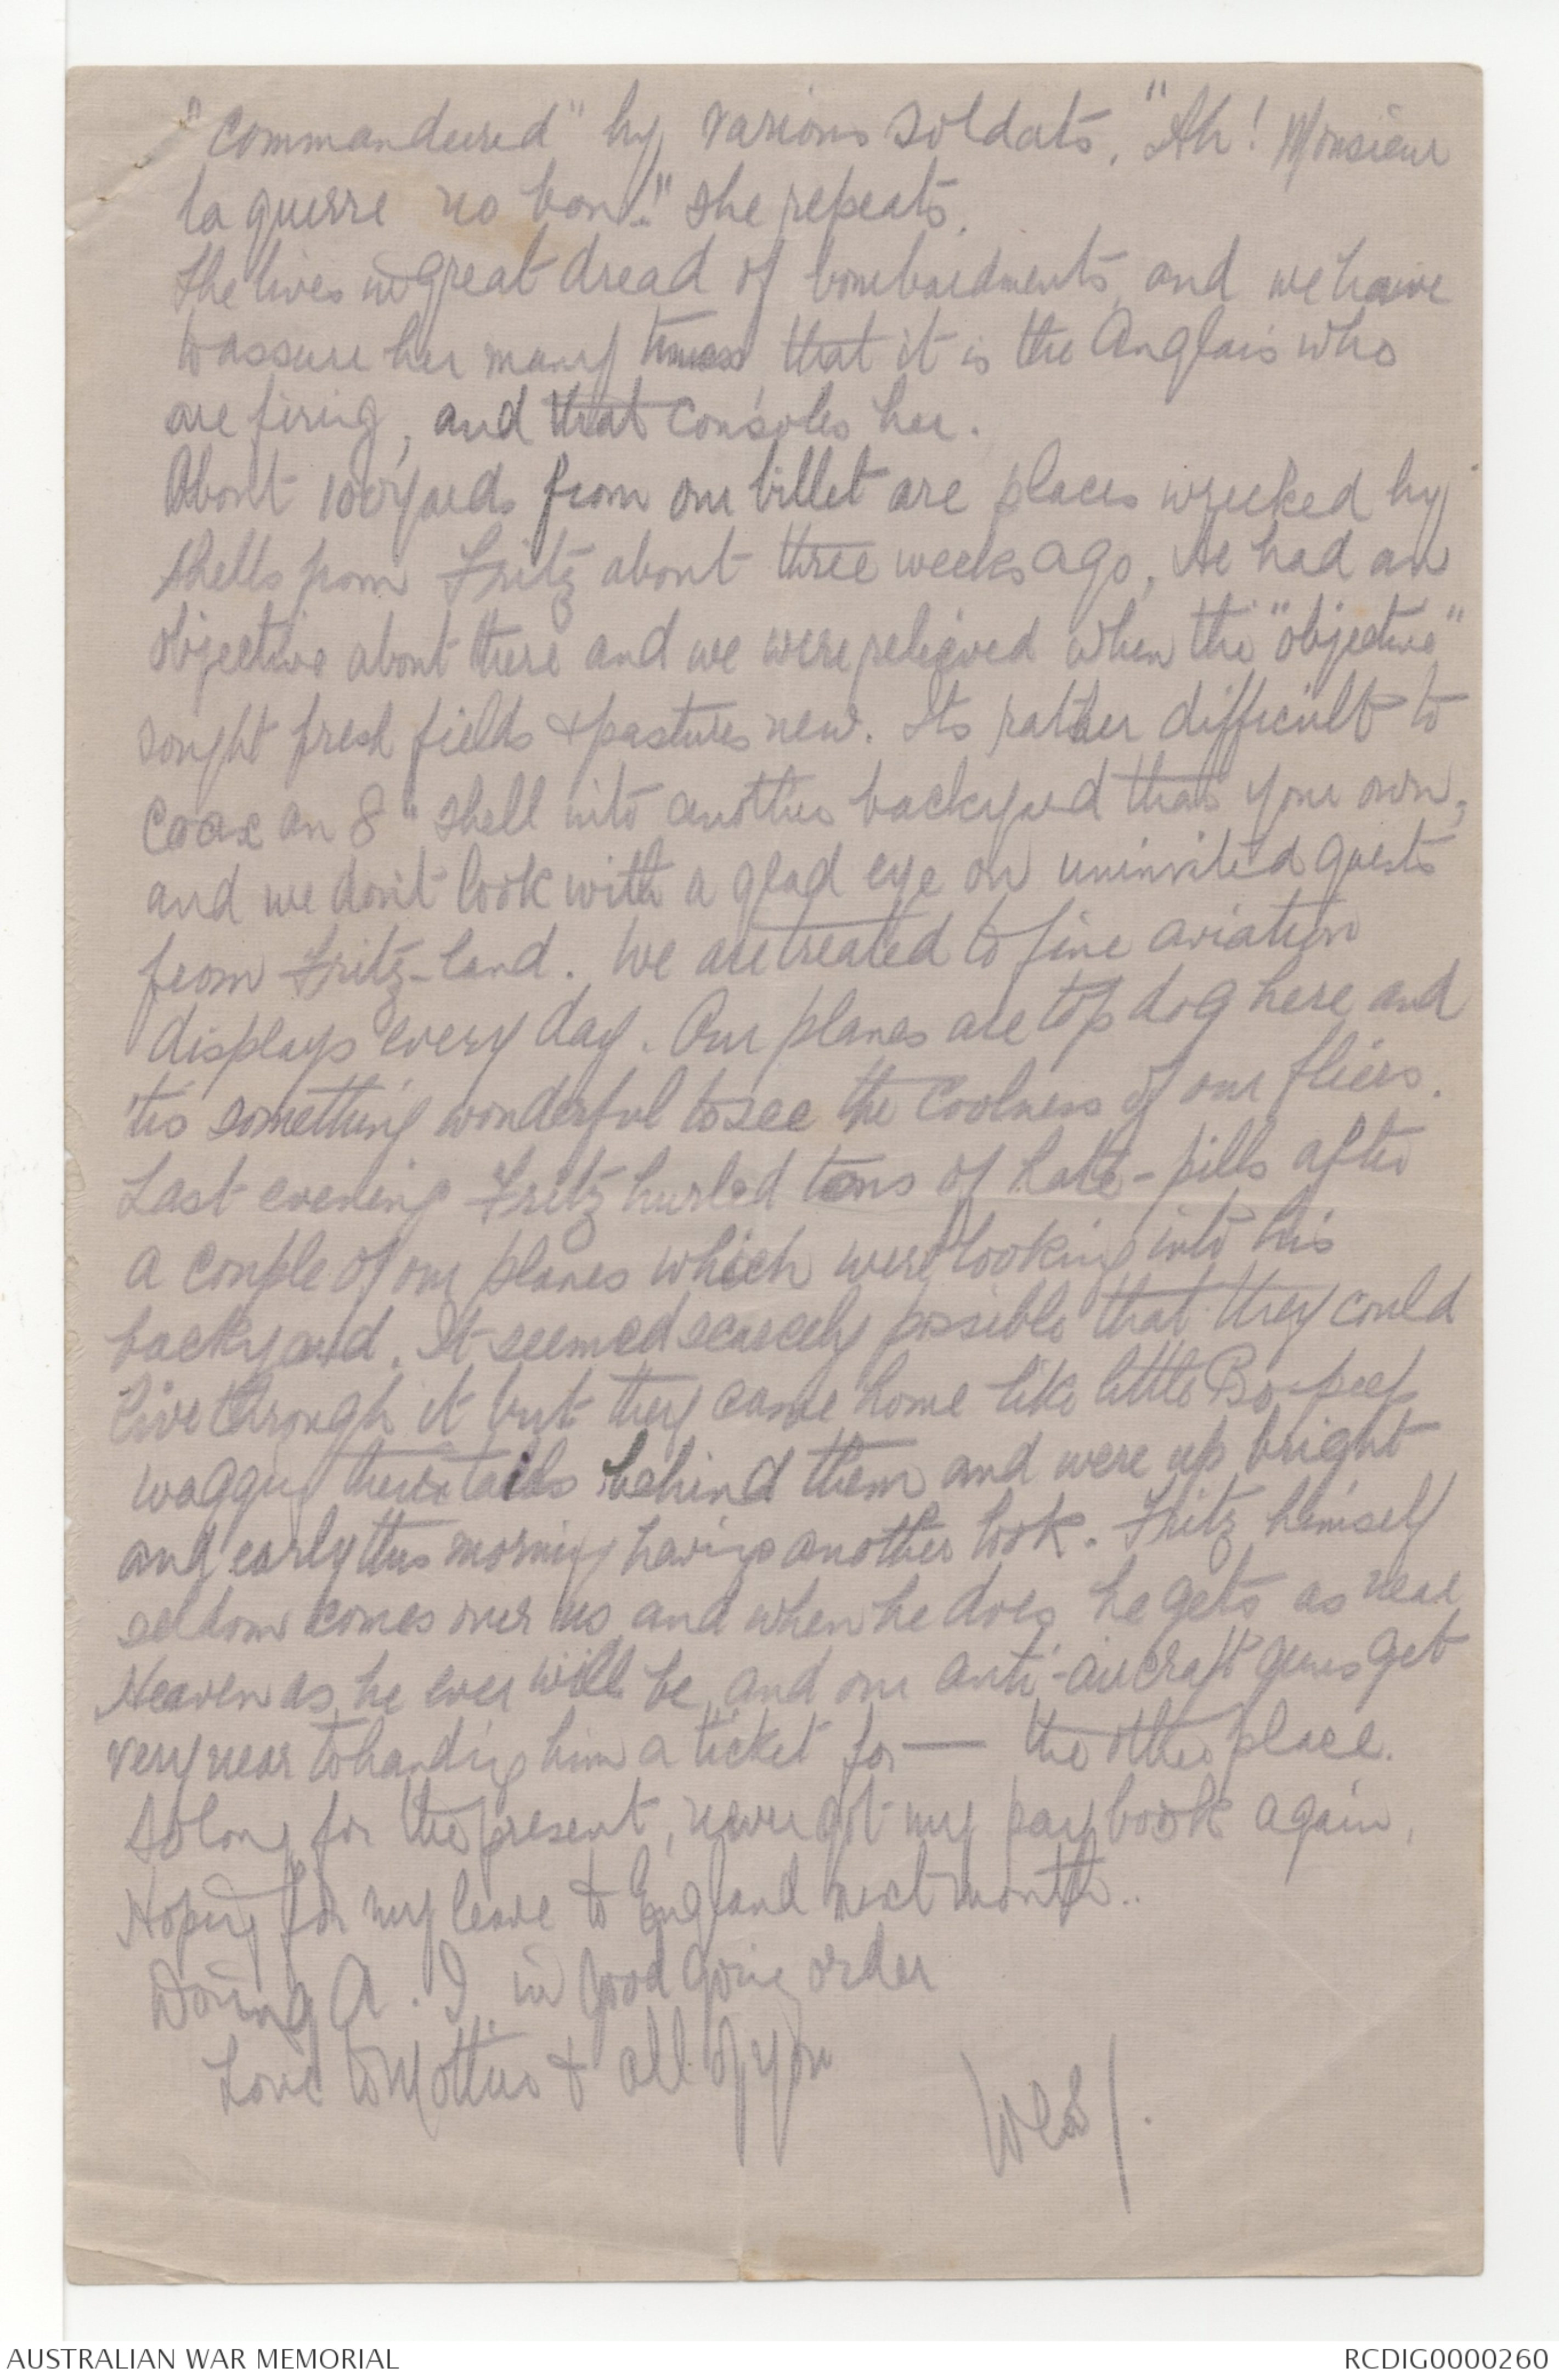 "commandeered" by various soldats. "Ah! Monsieur
la guerre no bon!" she repeats.
She lives in great dread of bombardments, and we have
to assure her many times that it is the Anglais who
are firing, and that consoles her.
About 100 yards from our billet are places wrecked by
shells from Fritz about three weeks ago. He had an
objective about there and we were relieved when the "objective"
sought fresh fields & pastures new. Its rather difficult to
coax an 8" shell into another backyard than your own,
and we don't look with a glad eye on uninvited guests
from Fritz-land. We are treated to fine aviation
displays every day. Our planes are top dog here and
'tis something wonderful to see the coolness of our fliers.
Last evening Fritz hurled tons of hate-pills after
a couple of our planes which were looking into his
backyard. It seemed scarcely possible that they could
live through it but they came home like little Bo-peep
waggin their tails behind them and were up bright
and early this morning having another look. Fritz himself
seldom comes over us and when he does he gets as near
Heaven as he ever will be, and our anti-aircraft guns get
very near to handing him a ticket for — the other place.
So long for the present, never got my pay book again.
Hoping for my leave to England next month..
Doing A.I. in good going order
Love to Mother & all of you
Wes/.
AUSTRALIAN WAR MEMORIAL
RCDIG0000260